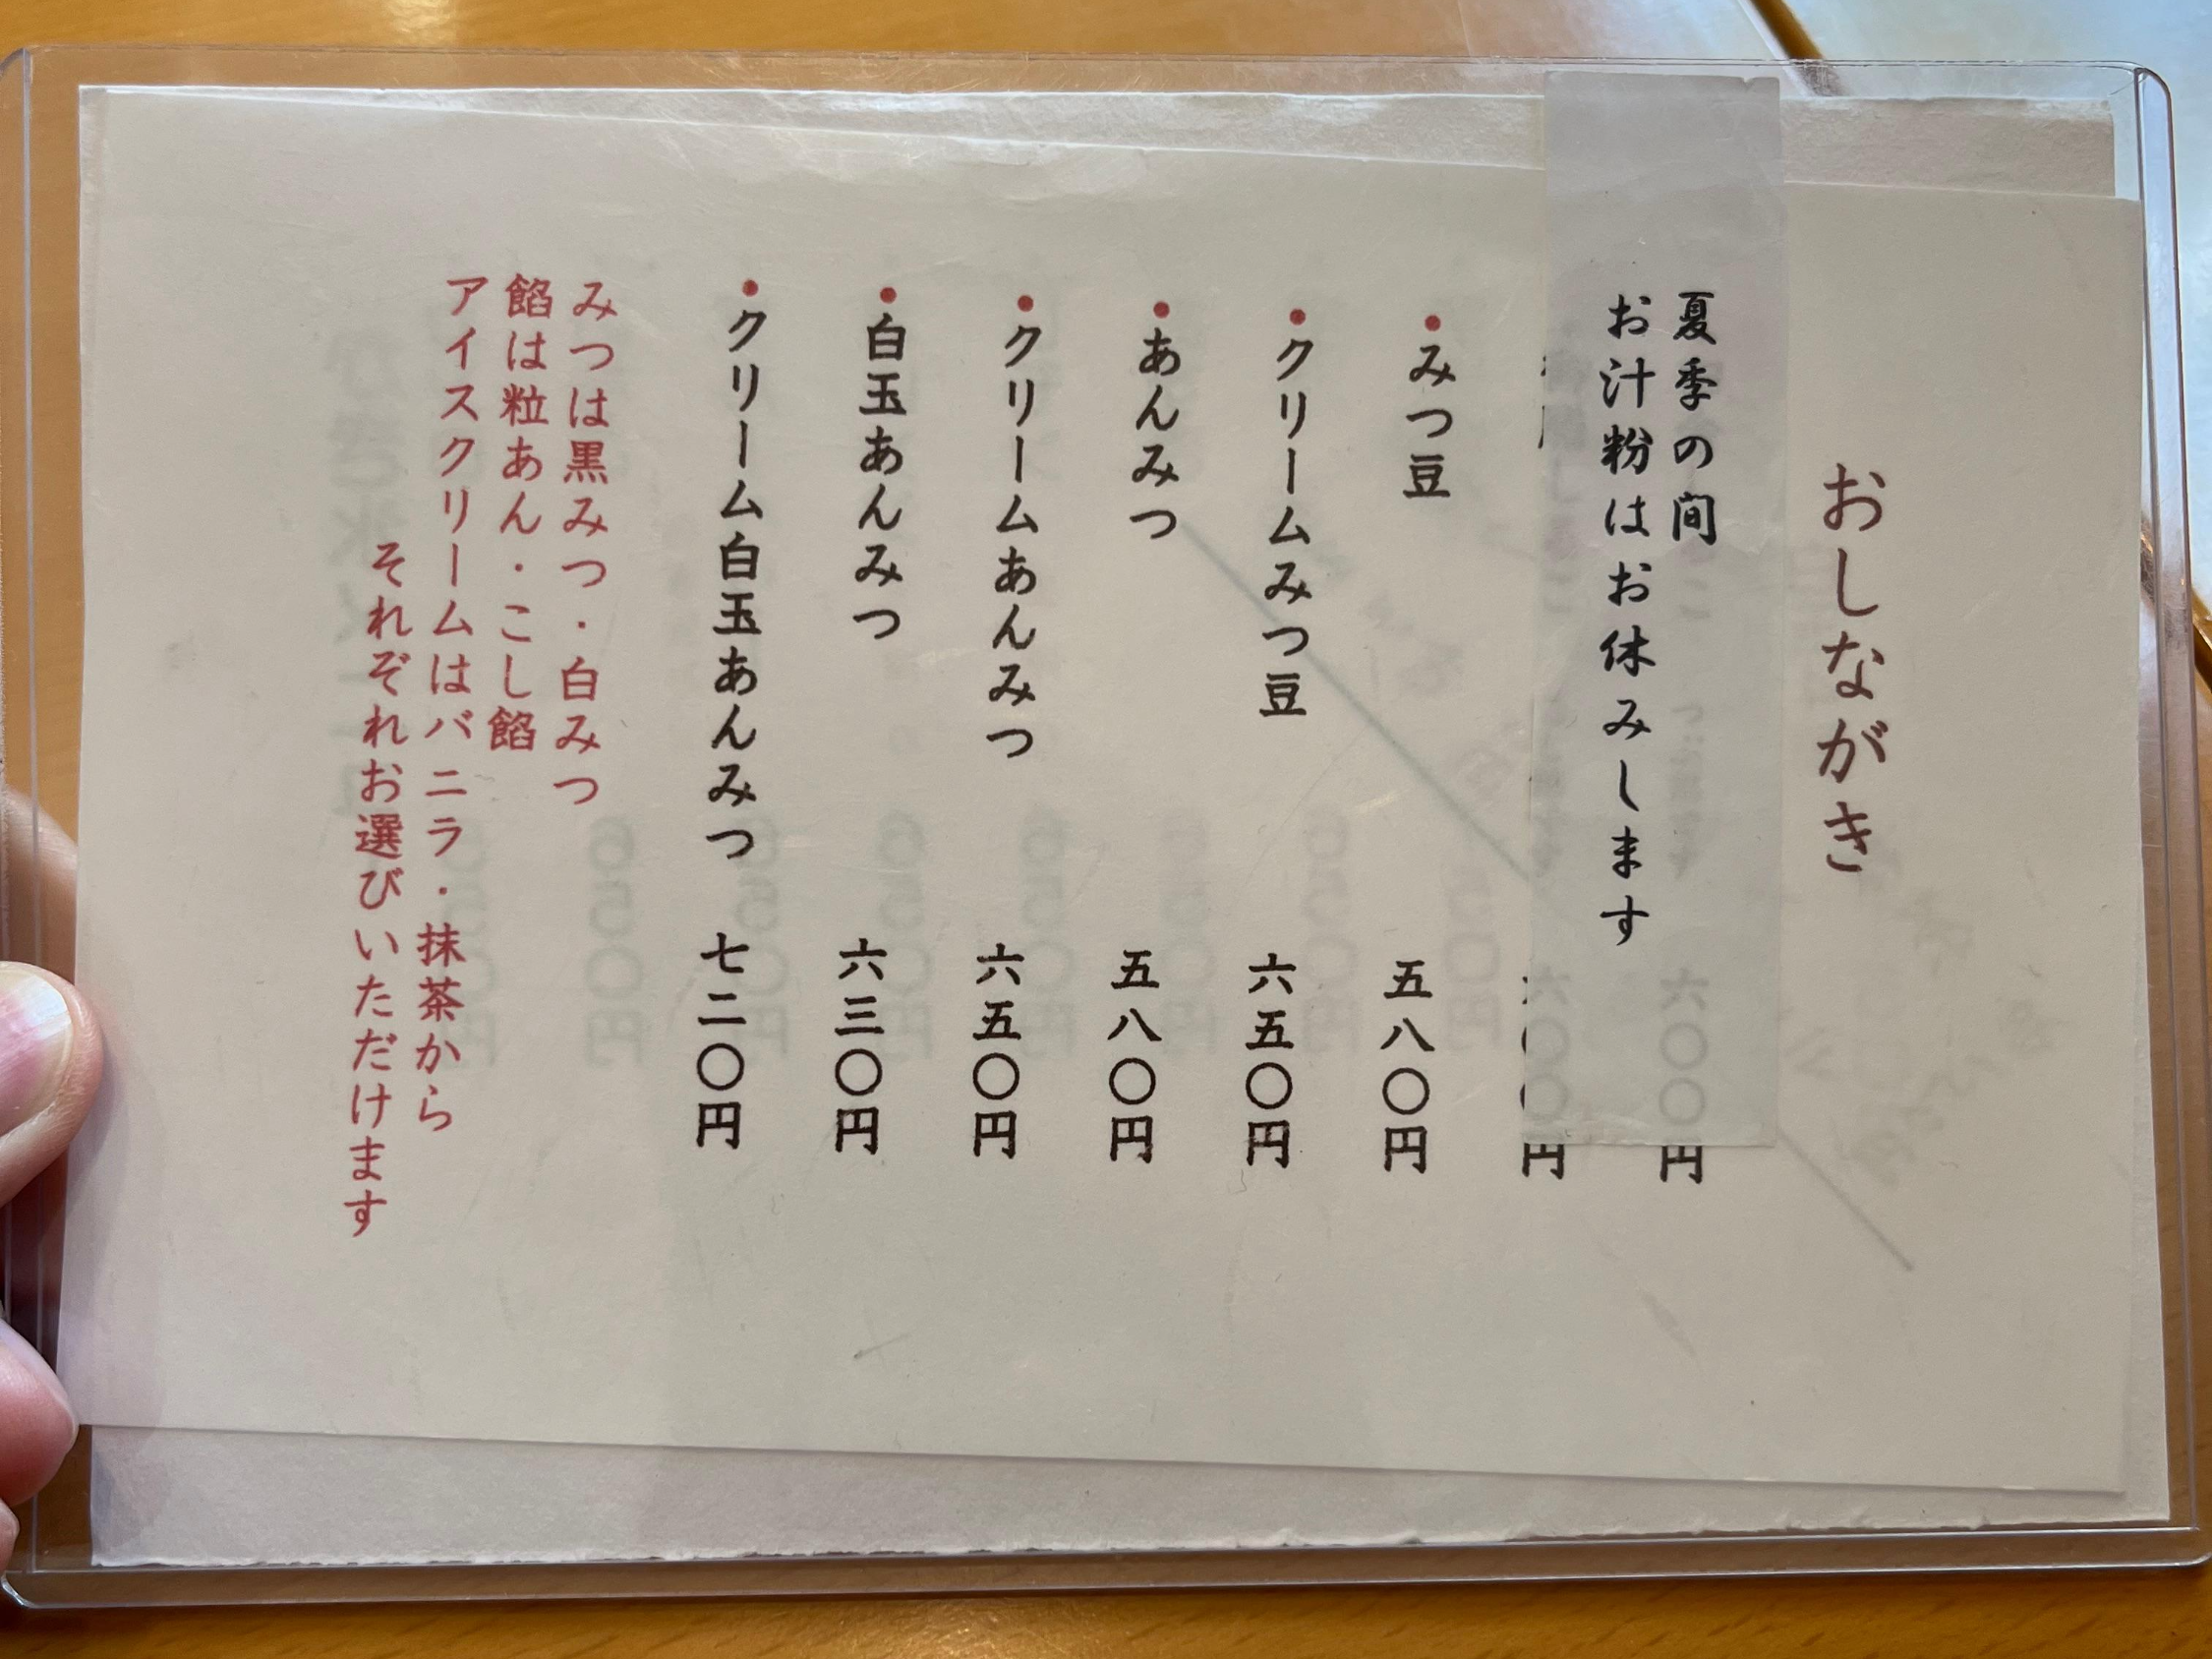 おしながき
夏季の間
お汁粉はお休みします
六〇〇円
六〇〇円
・みつ豆 五八〇円
・クリームみつ豆 六五〇円
・あんみつ 五八〇円
・クリームあんみつ 六五〇円
・白玉あんみつ 六三〇円
・クリーム白玉あんみつ 七二〇円
みつは黒みつ・白みつ
餡は粒あん・こし餡
アイスクリームはバニラ・抹茶から
それぞれお選びいただけます